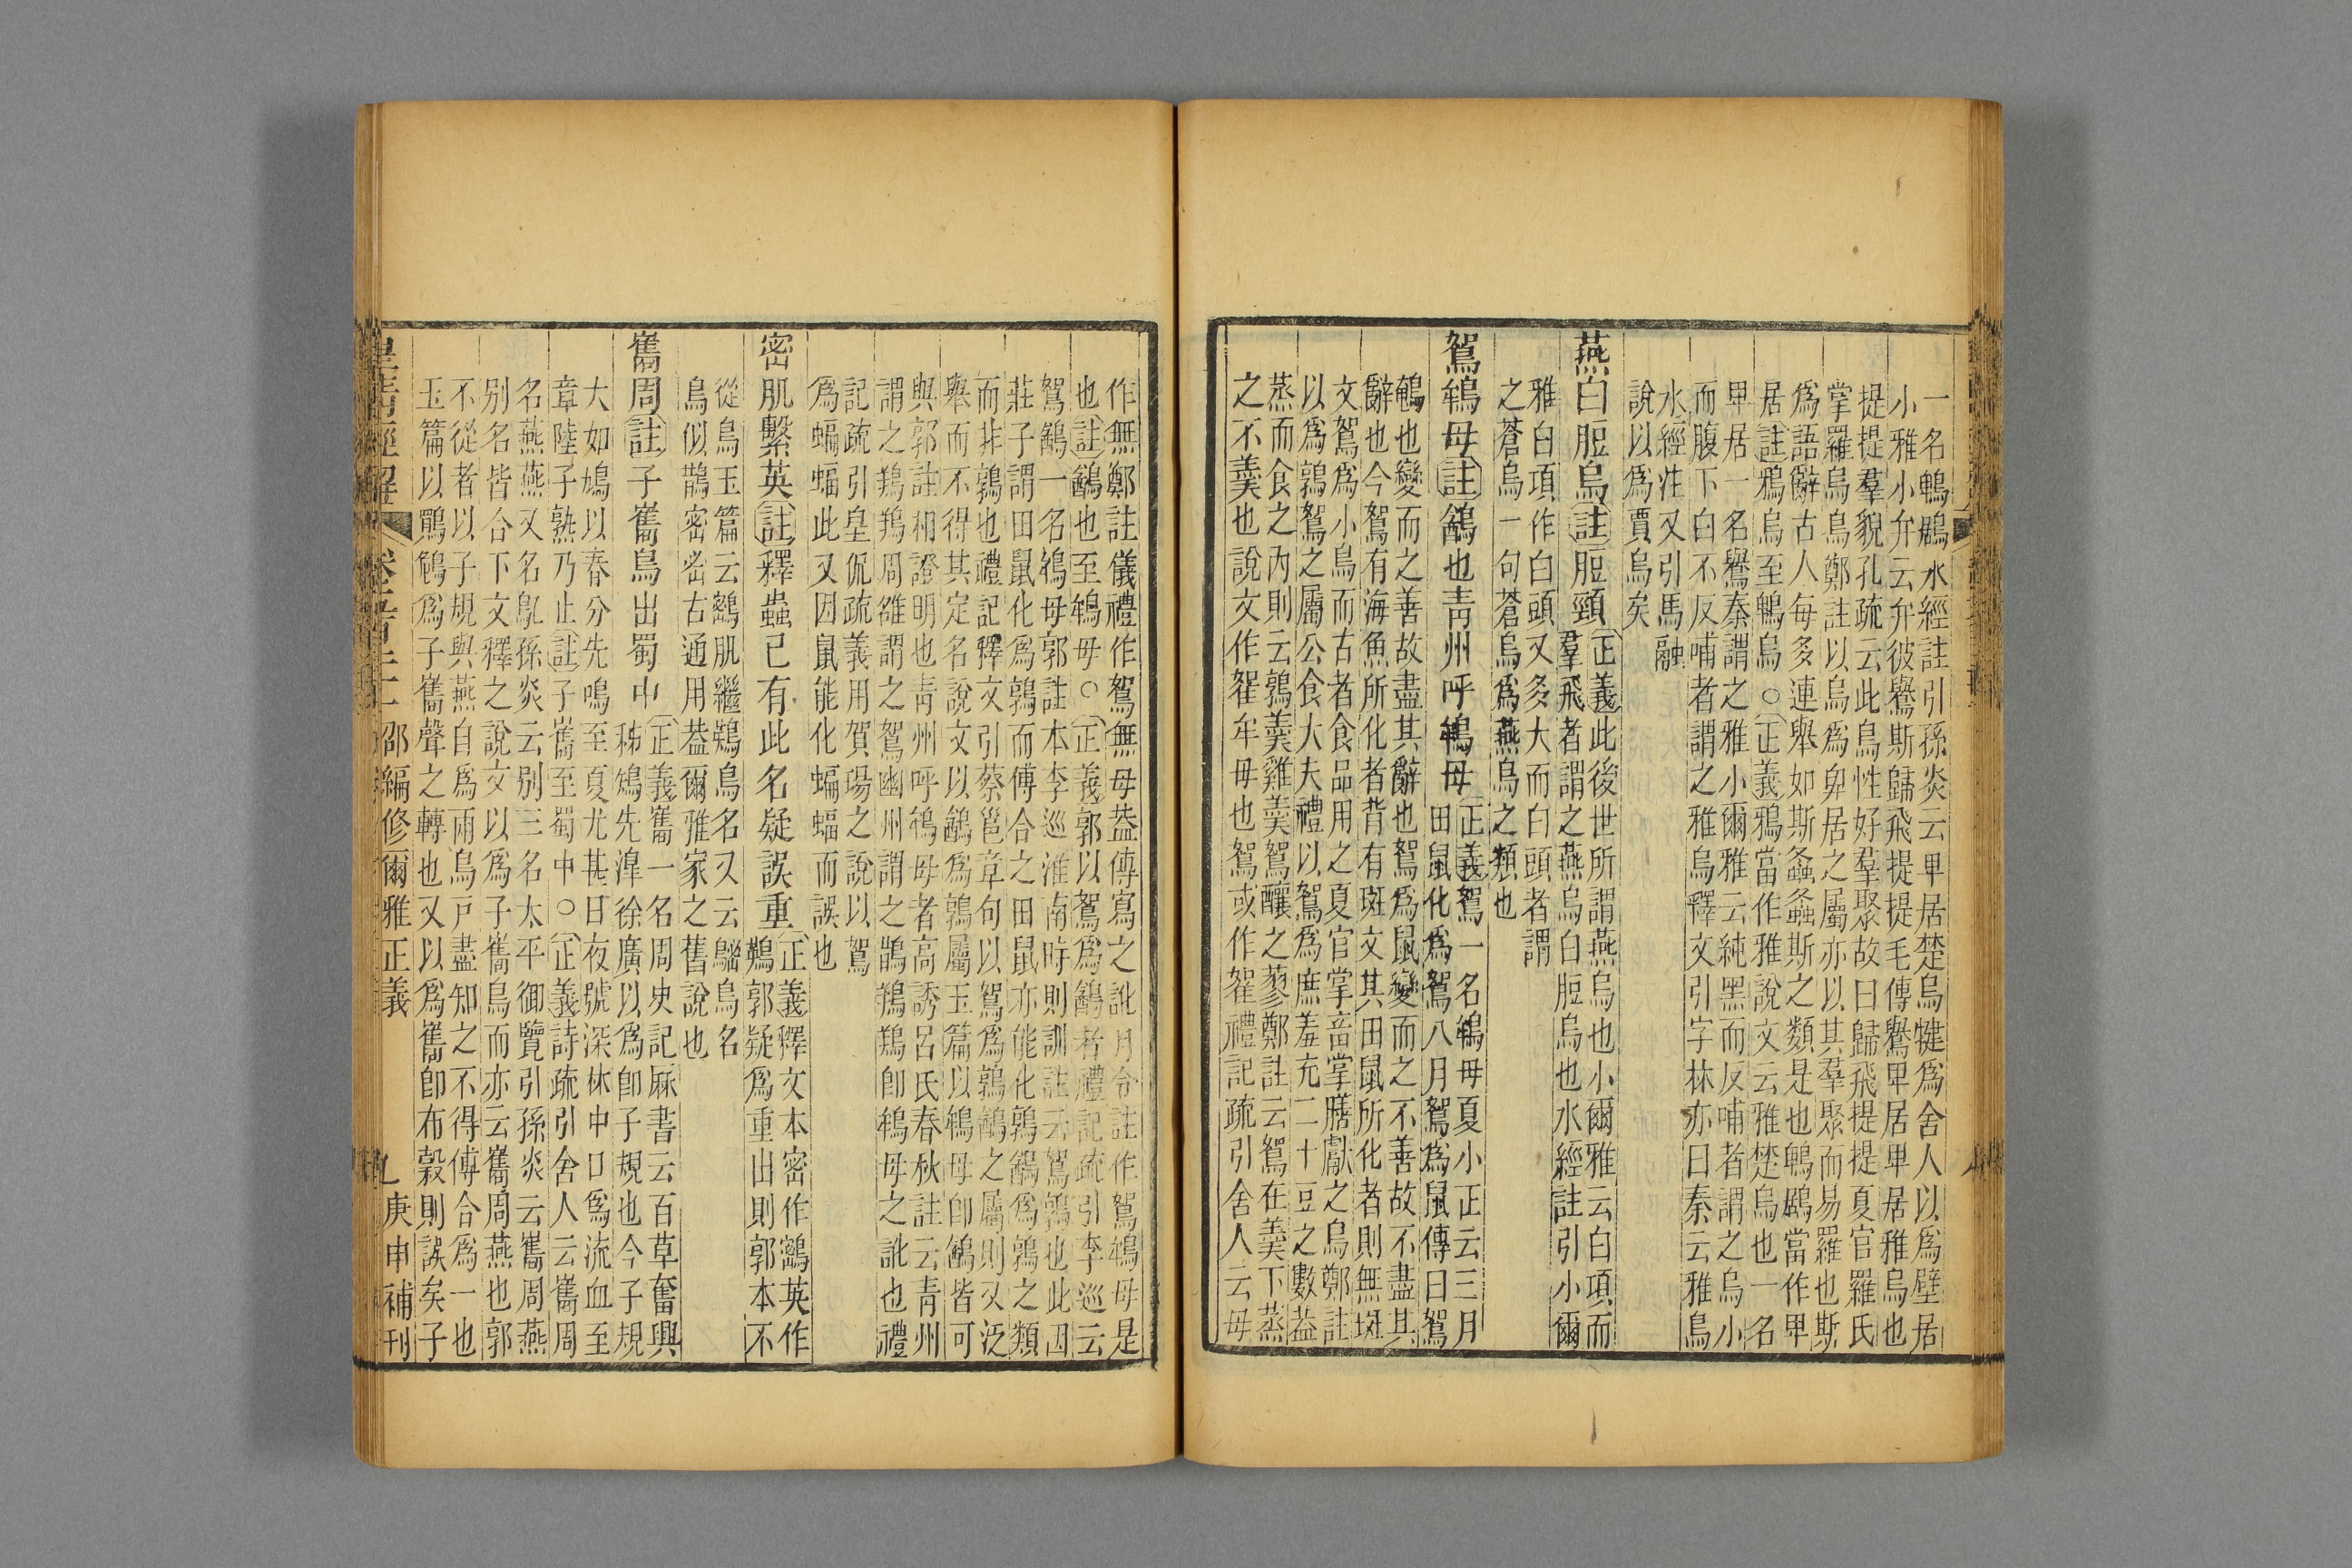 一名鵯鶋水經註引孫炎云卑居楚烏犍爲舍人以爲壁居
小雅小弁云弁彼鸒斯歸飛提提毛傳鸒卑居卑居雅烏也
提提羣貌孔疏云此鳥性好羣聚故曰歸飛提提夏官羅氏
掌羅烏鳥鄭註以烏爲卑居之屬亦以其羣聚而易羅也斯
爲語辭古人每多連舉如斯螽螽斯之類是也鵯鶋當作卑
居註鴉烏至鵯烏○正義鴉當作雅說文云雅楚烏也一名
卑居一名鸒秦謂之雅小爾雅云純黑而反哺者謂之烏小
而腹下白不反哺者謂之雅烏釋文引字林亦曰秦云雅烏
水經注又引馬融
說以爲賈烏矣
燕白脰烏註脰頸正義此後世所謂燕烏也小爾雅云白項而
羣飛者謂之燕烏白脰烏也水經註引小爾
雅白項作白頭又多大而白頭者謂
之蒼烏一句蒼烏爲燕烏之類也
鴽鴾母註䳺也青州呼鴾母正義鴽一名鴾母夏小正云三月
田鼠化爲鴽八月鴽爲鼠傳曰鴽
䳺也變而之善故盡其辭也鴽爲鼠變而之不善故不盡其
辭也今鴽有海魚所化者背有斑文其田鼠所化者則無斑
文鴽爲小鳥而古者食品用之夏官掌畜掌膳獻之鳥鄭註
以爲鶉鴽之屬公食大夫禮以鴽爲庶羞充二十豆之數葢
蒸而食之內則云鶉羹雞羹鴽釀之蓼鄭註云鴽在羹下蒸
之不羹也說文作䳺牟毋也鴽或作䳺禮記疏引舍人云毋
作無鄭註儀禮作鴽無母葢傳寫之訛月令註作鴽鴾母是
也註䳺也至鴾母○正義郭以鴽爲䳺者禮記疏引李巡云
鴽䳺一名鴾母郭註本李巡淮南時則訓註云鴽鶉也此因
莊子謂田鼠化爲鶉而傅合之田鼠亦能化鶉䳺爲鶉之類
而非鶉也禮記釋文引蔡邕章句以鴽爲鶉䳺之屬則又泛
舉而不得其定名說文以䳺爲鶉屬玉篇以鴾母卽䳺皆可
與郭註相證明也青州呼鴾母者高誘呂氏春秋註云青州
謂之鴾鴾周雒謂之鴽幽州謂之鵲鴾卽鴾母之訛也禮
記疏引皇侃疏義用賀瑒之說以鴽
爲蝙蝠此又因鼠能化蝙蝠而誤也
密肌繫英註釋蟲已有此名疑誤重正義釋文本密作鷭英作
鶧郭疑爲重出則郭本不
從鳥玉篇云鷭肌繼鶧鳥名又云鶹鳥名
鳥似鵲密宓古通用葢爾雅家之舊說也
巂周註子巂鳥出蜀中正義巂一名周史記厤書云百草奮興
秭鴂先滜徐廣以爲卽子規也今子規
大如鳩以春分先鳴至夏尤甚日夜號深林中口爲流血至
章陸子熟乃止註子巂至蜀中○正義詩疏引舍人云巂周
名燕燕又名鳦孫炎云别三名太平御覽引孫炎云巂周燕
别名皆合下文釋之說文以爲子巂鳥而亦云巂周燕也郭
不從者以子規與燕自爲兩鳥戸盡知之不得傅合爲一也
玉篇以鶻鵃爲子巂聲之轉也又以爲巂卽布穀則誤矣子
皇清經解 邵編修爾雅正義 九 庚申補刊